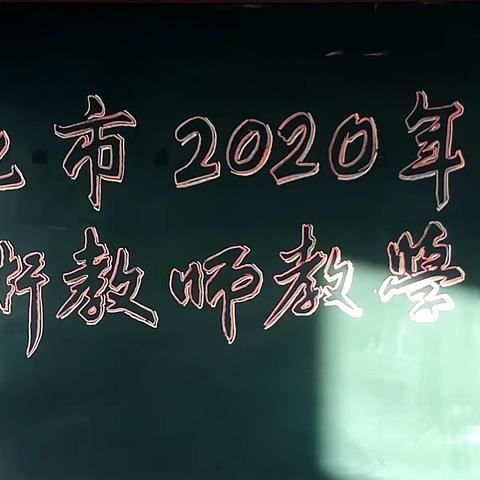 市2020年
教师教学